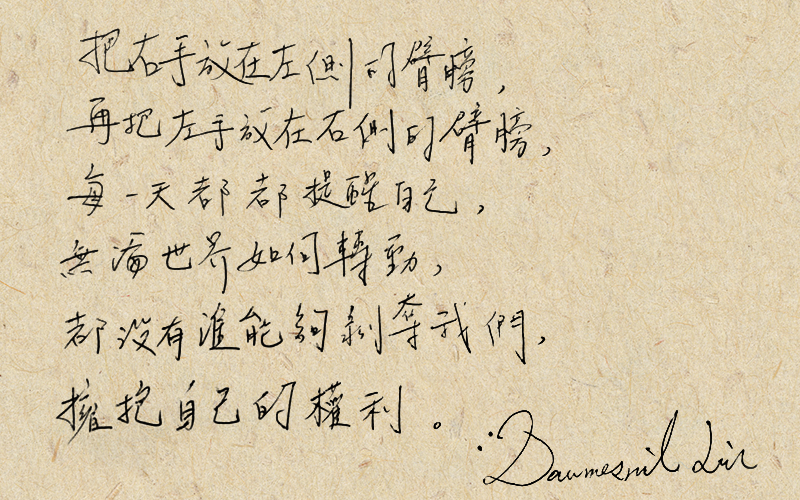 把右手放在左側的臂膀，
再把左手放在右側的臂膀，
每一天都都提醒自己，
無論世界如何轉動，
都沒有誰能夠剝奪我們，
擁抱自己的權利。
Daumesnil Lin